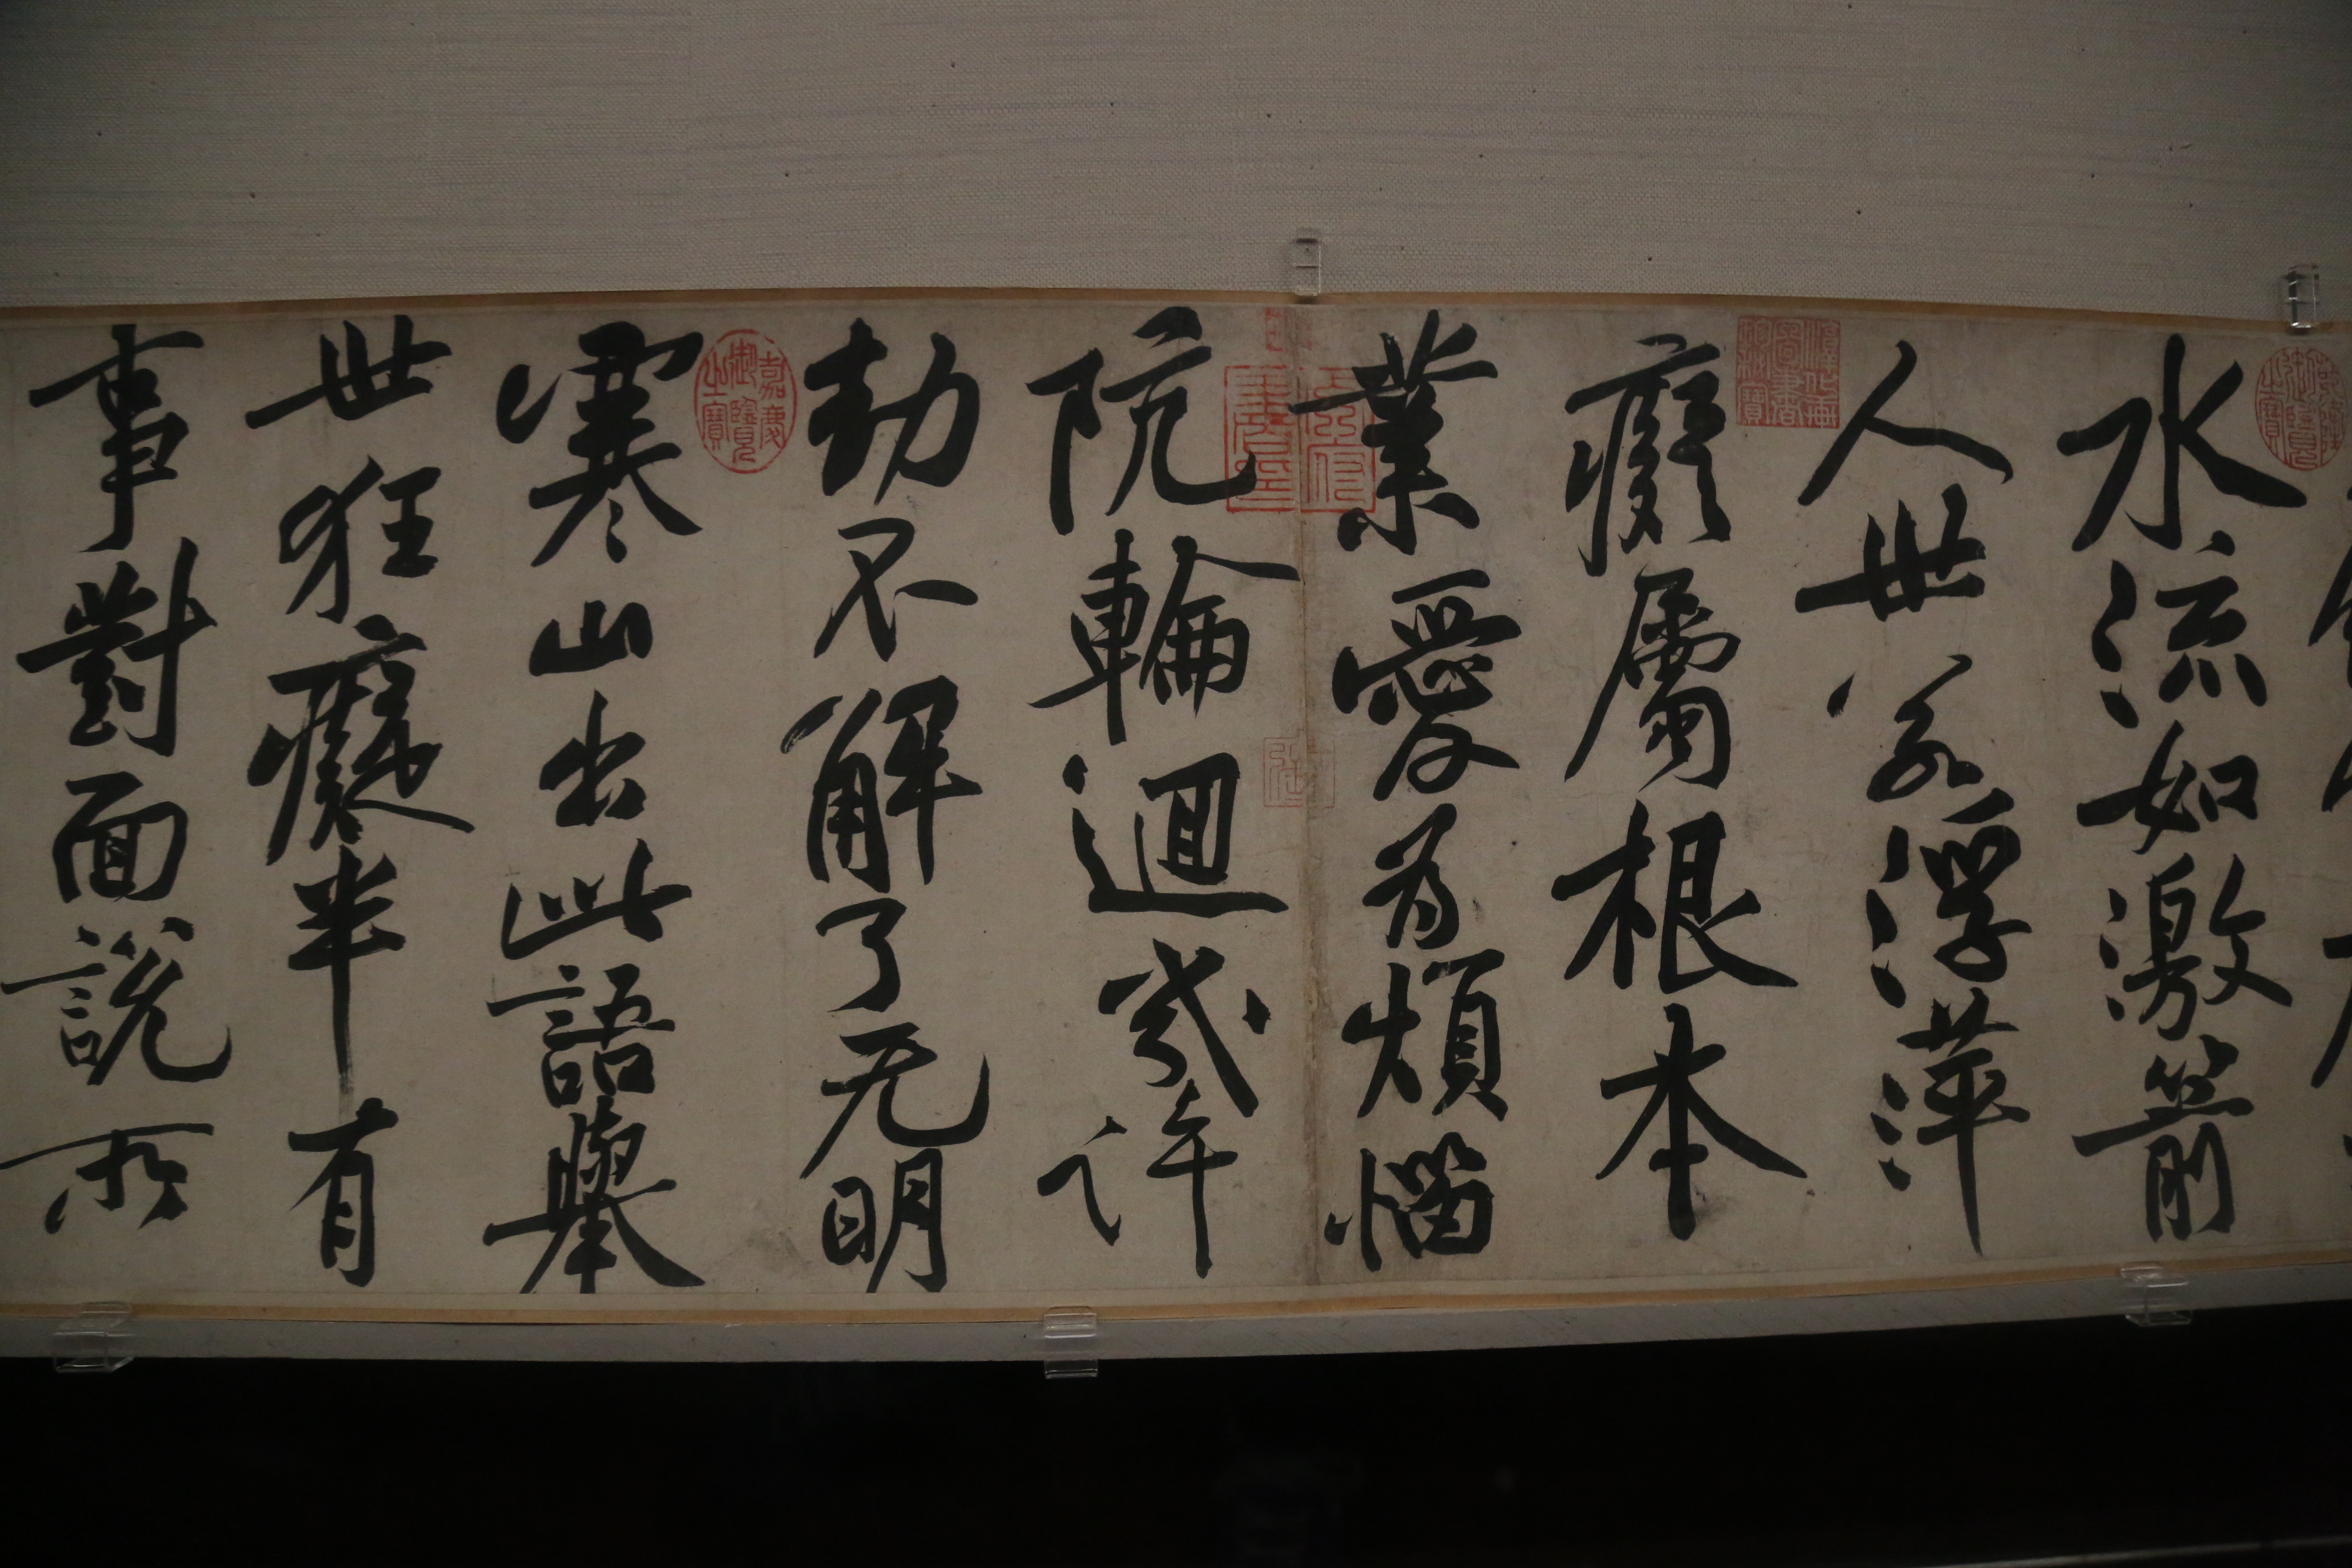 水流如激箭
人世若浮萍
癡屬根本
業愛為煩惱
阬輪迴幾許
劫不解了无明
寒山出此語舉
世狂癡半有
事對面說所
嘉慶御覽之寶